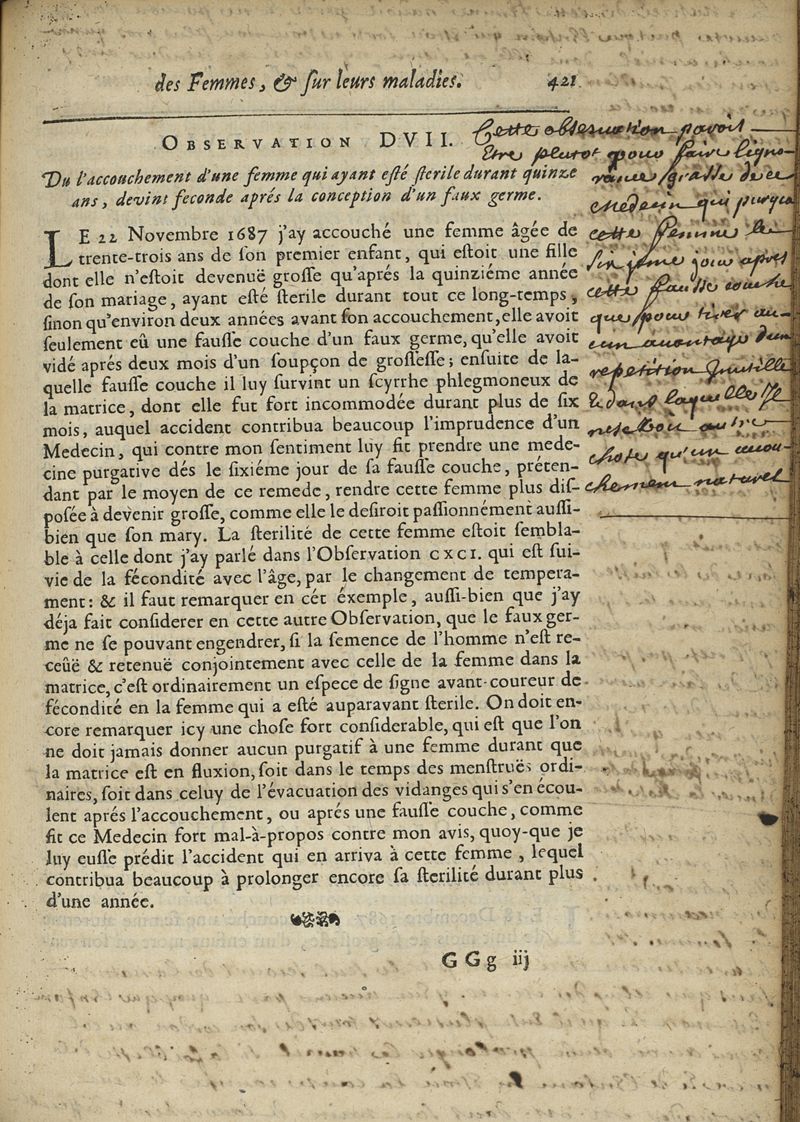 des Femmes, & ſur leurs maladies. 421
OBSERVATION DVII.
Du l'accouchement d'une femme qui ayant eſté ſterile durant quinze
ans, devint feconde aprés la conception d'un faux germe.
LE 22 Novembre 1687 j'ay accouché une femme âgée de
trente-trois ans de ſon premier enfant, qui eſtoit une fille
dont elle n'eſtoit devenuë groſſe qu'aprés la quinziéme année
de ſon mariage, ayant eſté ſterile durant tout ce long-temps,
ſinon qu'environ deux années avant ſon accouchement, elle avoit
ſeulement eû une fauſſe couche d'un faux germe, qu'elle avoit
vidé aprés deux mois d'un ſoupçon de groſſeſſe; enſuite de la-
quelle fauſſe couche il luy ſurvint un ſcyrrhe phlegmoneux de
la matrice, dont elle fut fort incommodée durant plus de ſix
mois, auquel accident contribua beaucoup l'imprudence d'un
Medecin, qui contre mon ſentiment luy fit prendre une mede-
cine purgative dés le ſixiéme jour de ſa fauſſe couche, préten-
dant par le moyen de ce remede, rendre cette femme plus diſ-
poſée à devenir groſſe, comme elle le deſiroit paſſionnément auſſi-
bien que ſon mary. La ſterilité de cette femme eſtoit ſembla-
ble à celle dont j'ay parlé dans l'Obſervation CXCI. qui eſt ſui-
vie de la fécondité avec l'âge, par le changement de tempera-
ment: & il faut remarquer en cét éxemple, auſſi-bien que j'ay
déja fait conſiderer en cette autre Obſervation, que le faux ger-
me ne ſe pouvant engendrer, ſi la ſemence de l'homme n'eſt re-
ceûë & retenuë conjointement avec celle de la femme dans la
matrice, c'eſt ordinairement un eſpece de ſigne avant-coureur de
fécondité en la femme qui a eſté auparavant ſterile. On doit en-
core remarquer icy une choſe fort conſiderable, qui eſt que l'on
ne doit jamais donner aucun purgatif à une femme durant que
la matrice eſt en fluxion, ſoit dans le temps des menſtruës ordi-
naires, ſoit dans celuy de l'évacuation des vidanges qui s'en écou-
lent aprés l'accouchement, ou aprés une fauſſe couche, comme
fit ce Medecin fort mal-à-propos contre mon avis, quoy-que je
luy euſſe prédit l'accident qui en arriva à cette femme, lequel
contribua beaucoup à prolonger encore ſa ſterilité durant plus
d'une année.
GGg iij
Cette obseruation pavoit
être plutot pour faire l'igno-
rance grasse de ce
medecin qui purgea
cette femme le
sixieme jour apres
cette fausse couche
que pour tirer au-
cun auantage d'un
repetition Inutille
& dans laquelle Il
autre
chose qu'un accou-
chement naturel